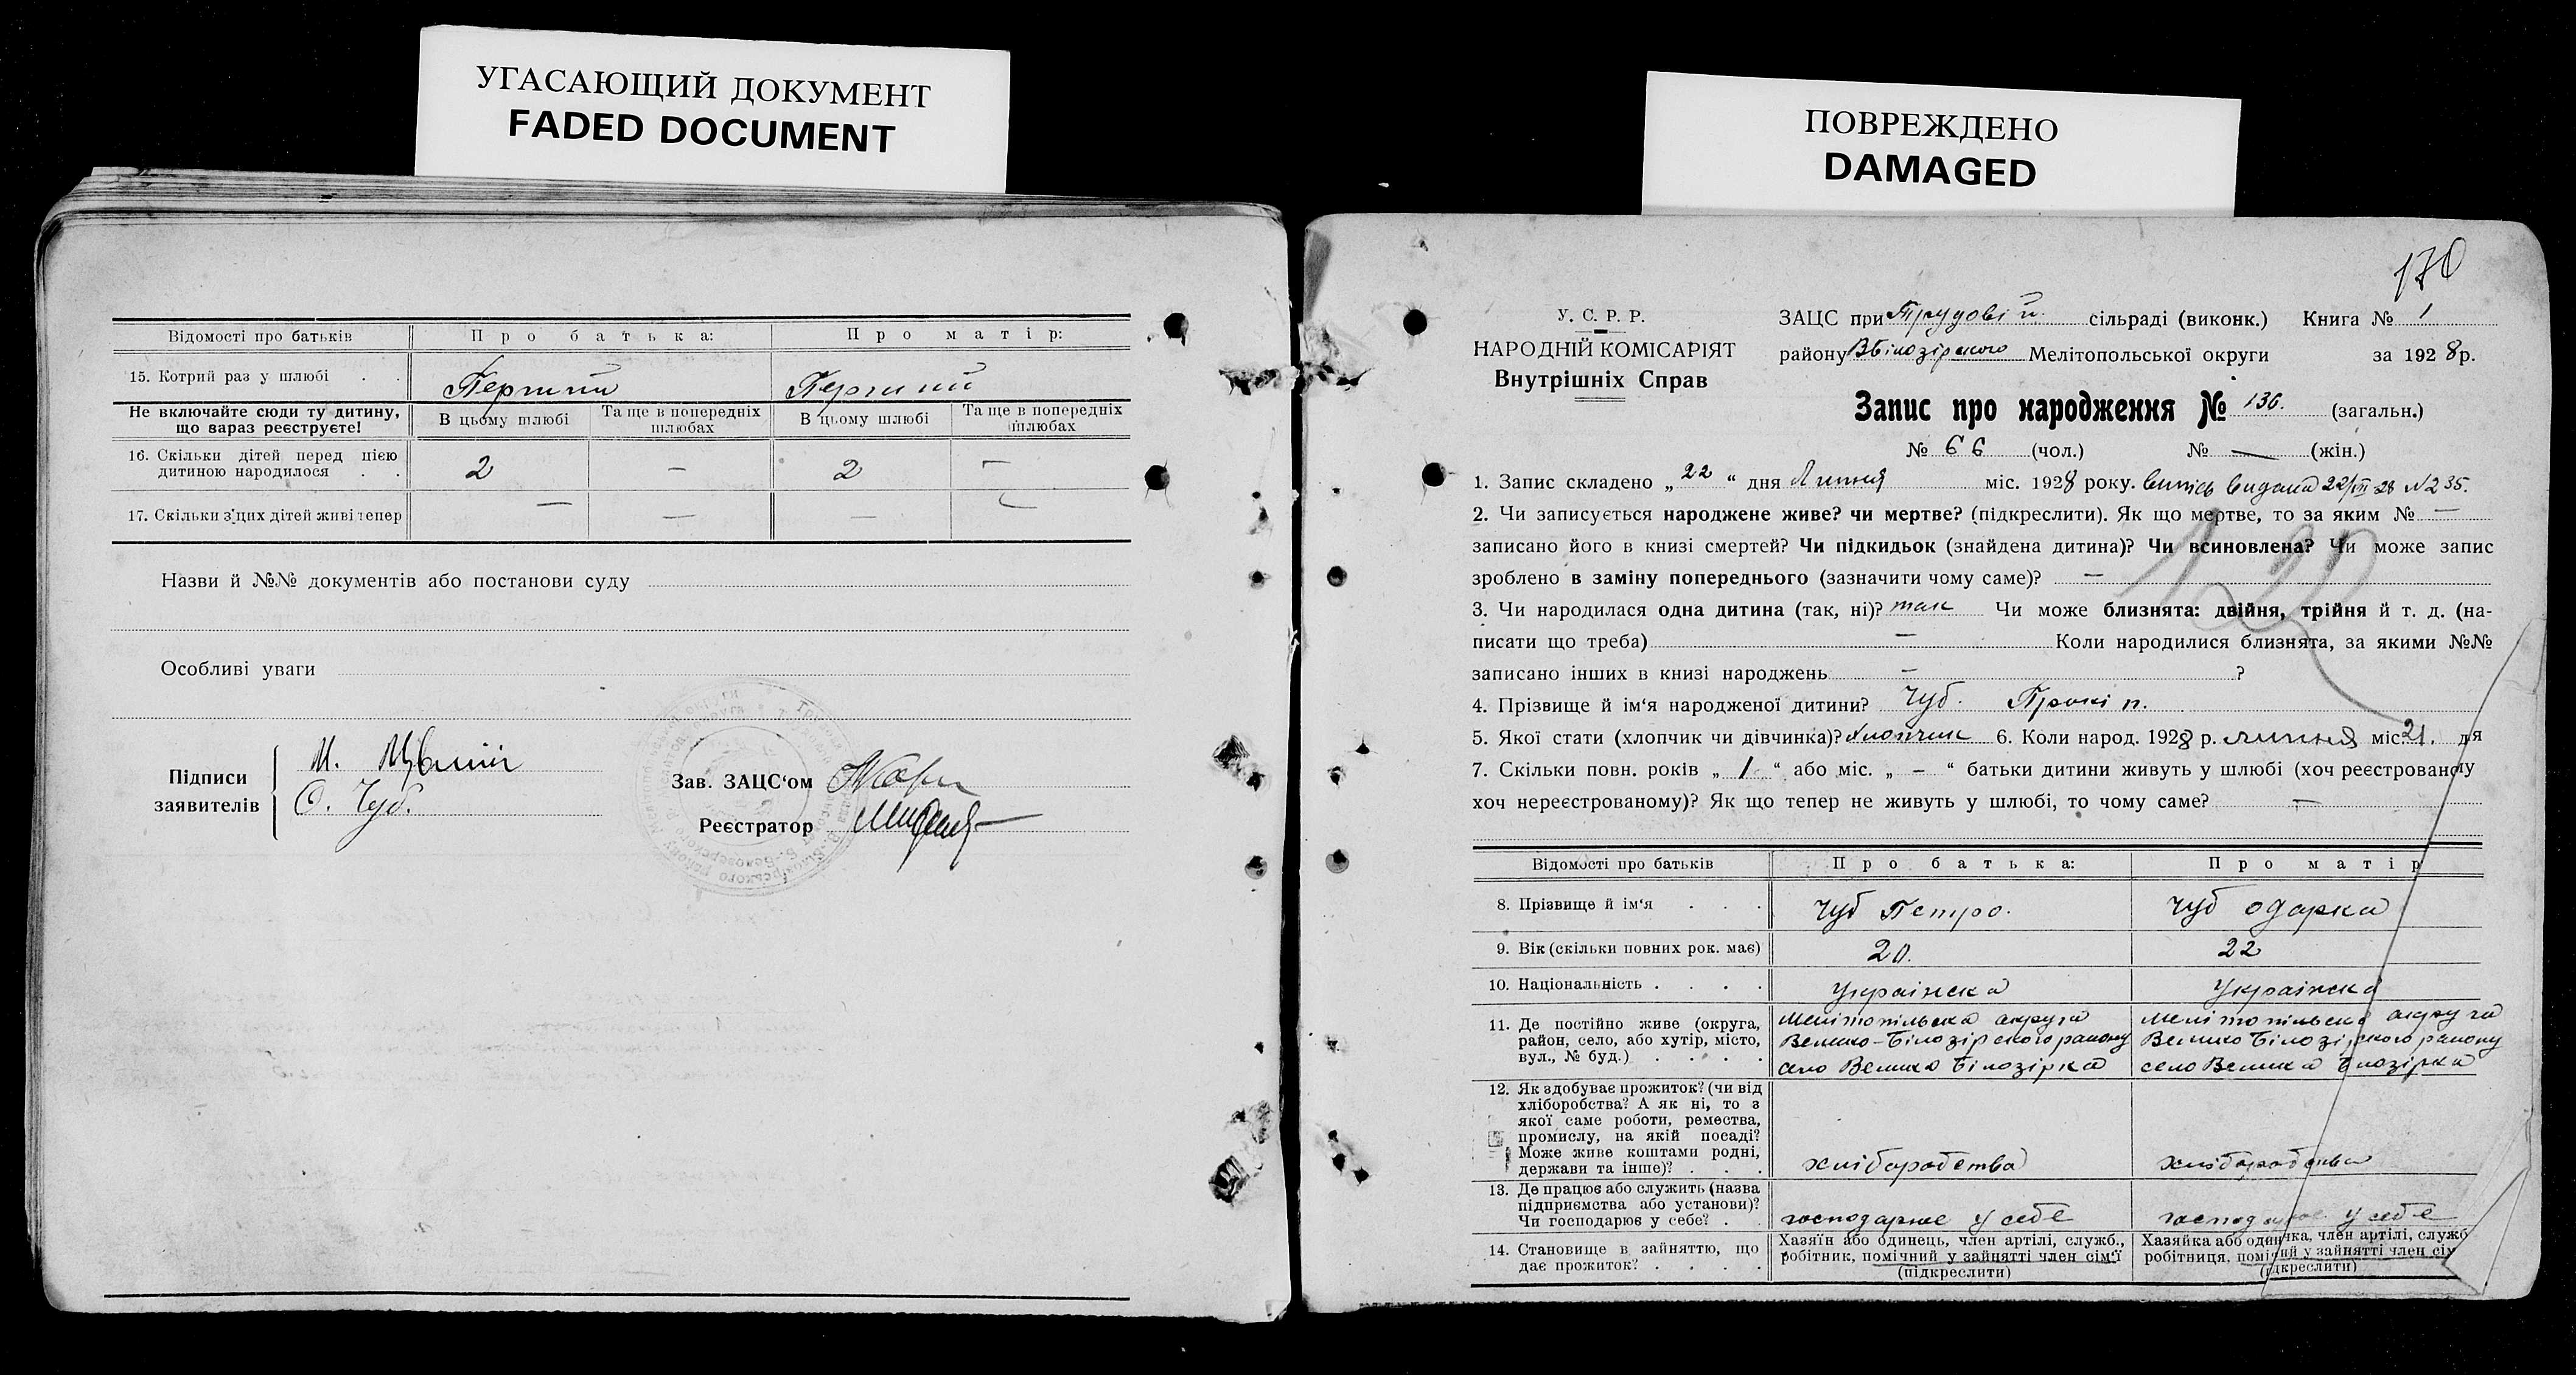 УГАСАЮЩИЙ ДОКУМЕНТ
FADED DOCUMENT
Відомості про батьків Про батька: Про матір:
15. Котрий раз у шлюбі . . Перший Перший
Не включайте сюди ту дитину, що зараз реєструєте! В цьому шлюбі Та ще в попередніх шлюбах В цьому шлюбі Та ще в попередніх шлюбах
16. Скільки дітей перед цією
дитиною народилося . . 2 — 2 —
17. Скільки з'цих дітей живі тепер — — — —
Назви й №№ документів або постанови суду
Особливі уваги
Підписи
заявителів
М.
О. Чуб.
Зав. ЗАЦС'ом
Реєстратор
ПОВРЕЖДЕНО
DAMAGED
170
У. С. Р. Р.
НАРОДНІЙ КОМІСАРІЯТ
Внутрішніх Справ
ЗАЦС при Трудовій сільраді (виконк.) Книга № 1
району ВБілозірского Мелітопольської округи за 1928 р.
Запис про народження № 136. (загальн.)
№ 66 (чол.) № — (жін.)
1. Запис складено „ 22 “ дня Липня міс. 1928 року. випісь видана 22/VII-28 №235.
2. Чи записується народжене живе? чи мертве? (підкреслити). Як що мертве, то за яким № —
записано його в книзі смертей? Чи підкидьок (знайдена дитина)? Чи всиновлена? Чи може запис
зроблено в заміну попереднього (зазначити чому саме)? —
3. Чи народилася одна дитина (так, ні)? так Чи може близнята: двійня, трійня й т. д. (на-
писати що треба) — Коли народилися близнята, за якими №№
записано інших в книзі народжень — ?
4. Прізвище й ім'я народженої дитини? Чуб. Прокіп.
5. Якої стати (хлопчик чи дівчинка)? хлопчик 6. Коли народ. 1928 р. липня міс. 21. дня
7. Скільки повн. років „ 1 “ або міс. „ — “ батьки дитини живуть у шлюбі (хоч реєстрованому
хоч нереєстрованому)? Як що тепер не живуть у шлюбі, то чому саме? —
122
Відомості про батьків Про батька: Про матір
8. Прізвище й ім'я . . . Чуб Петро. Чуб Одарка
9. Вік (скільки повних рок. має) 20. 22
10. Національність . . . . Українска Українска
11. Де постійно живе (округа,
район, село, або хутір, місто,
вул., № буд.) . . . .
Мелітопільска округа
Велико-Білозірского району
село Велика Білозірка
Мелітопільска округа
Велико Білозірского району
село Велика Білозірка
12. Як здобуває прожиток? (чи від
хліборобства? А як ні, то з
якої саме роботи, ремества,
промислу, на якій посаді?
Може живе коштами родні,
держави та інше)? . . .
хліборобства хліборобства
13. Де працює або служить (назва
підприємства або установи)?
Чи господарює у себе? . .
господарює у себе господарює у себе
14. Становище в зайняттю, що
дає прожиток? . . . .
Хазяїн або одинець, член артілі, служб.,
робітник, помічний у зайнятті член сім'ї
(підкреслити)
Хазяйка або одиначка, член артілі, служб
робітниця, помічний у зайнятті член сім
(підкреслити)